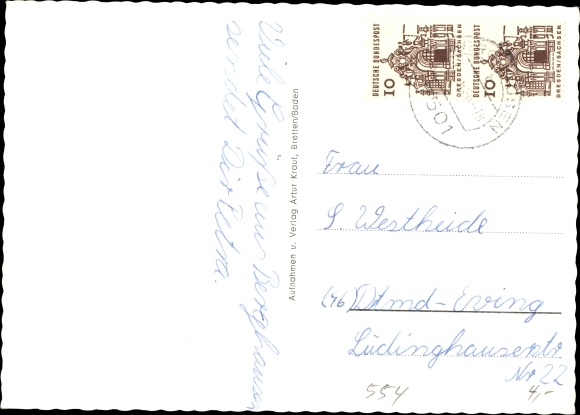 Viele Grüße aus Berghausen
sendet Dir Petra.
Aufnahmen u. Verlag Artur Kraut, Bretten/Baden
DEUTSCHE BUNDESPOST
10
DRESDEN/SACHSEN
DEUTSCHE BUNDESPOST
10
DRESDEN/SACHSEN
7501
Frau
S. Westheide
(46) Dtmd-Eving
Lüdinghauserstr
Nr 22
554
4,-